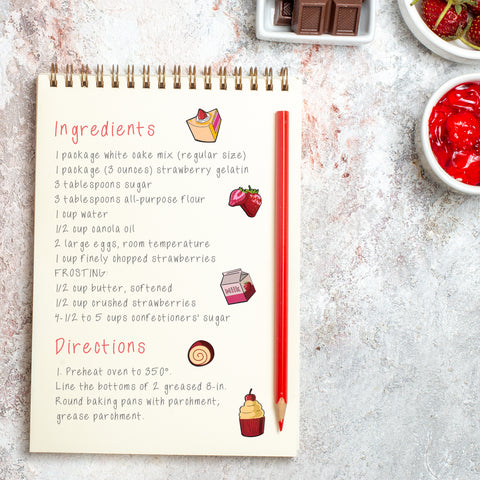 Ingredients
1 package white cake mix (regular size)
1 package (3 ounces) strawberry gelatin
3 tablespoons sugar
3 tablespoons all-purpose flour
1 cup water
1/2 cup canola oil
2 large eggs, room temperature
1 cup finely chopped strawberries
FROSTING:
1/2 cup butter, softened
1/2 cup crushed strawberries
4-1/2 to 5 cups confectioners' sugar
Directions
1. Preheat oven to 350°.
Line the bottoms of 2 greased 8-in.
Round baking pans with parchment;
grease parchment.
milk